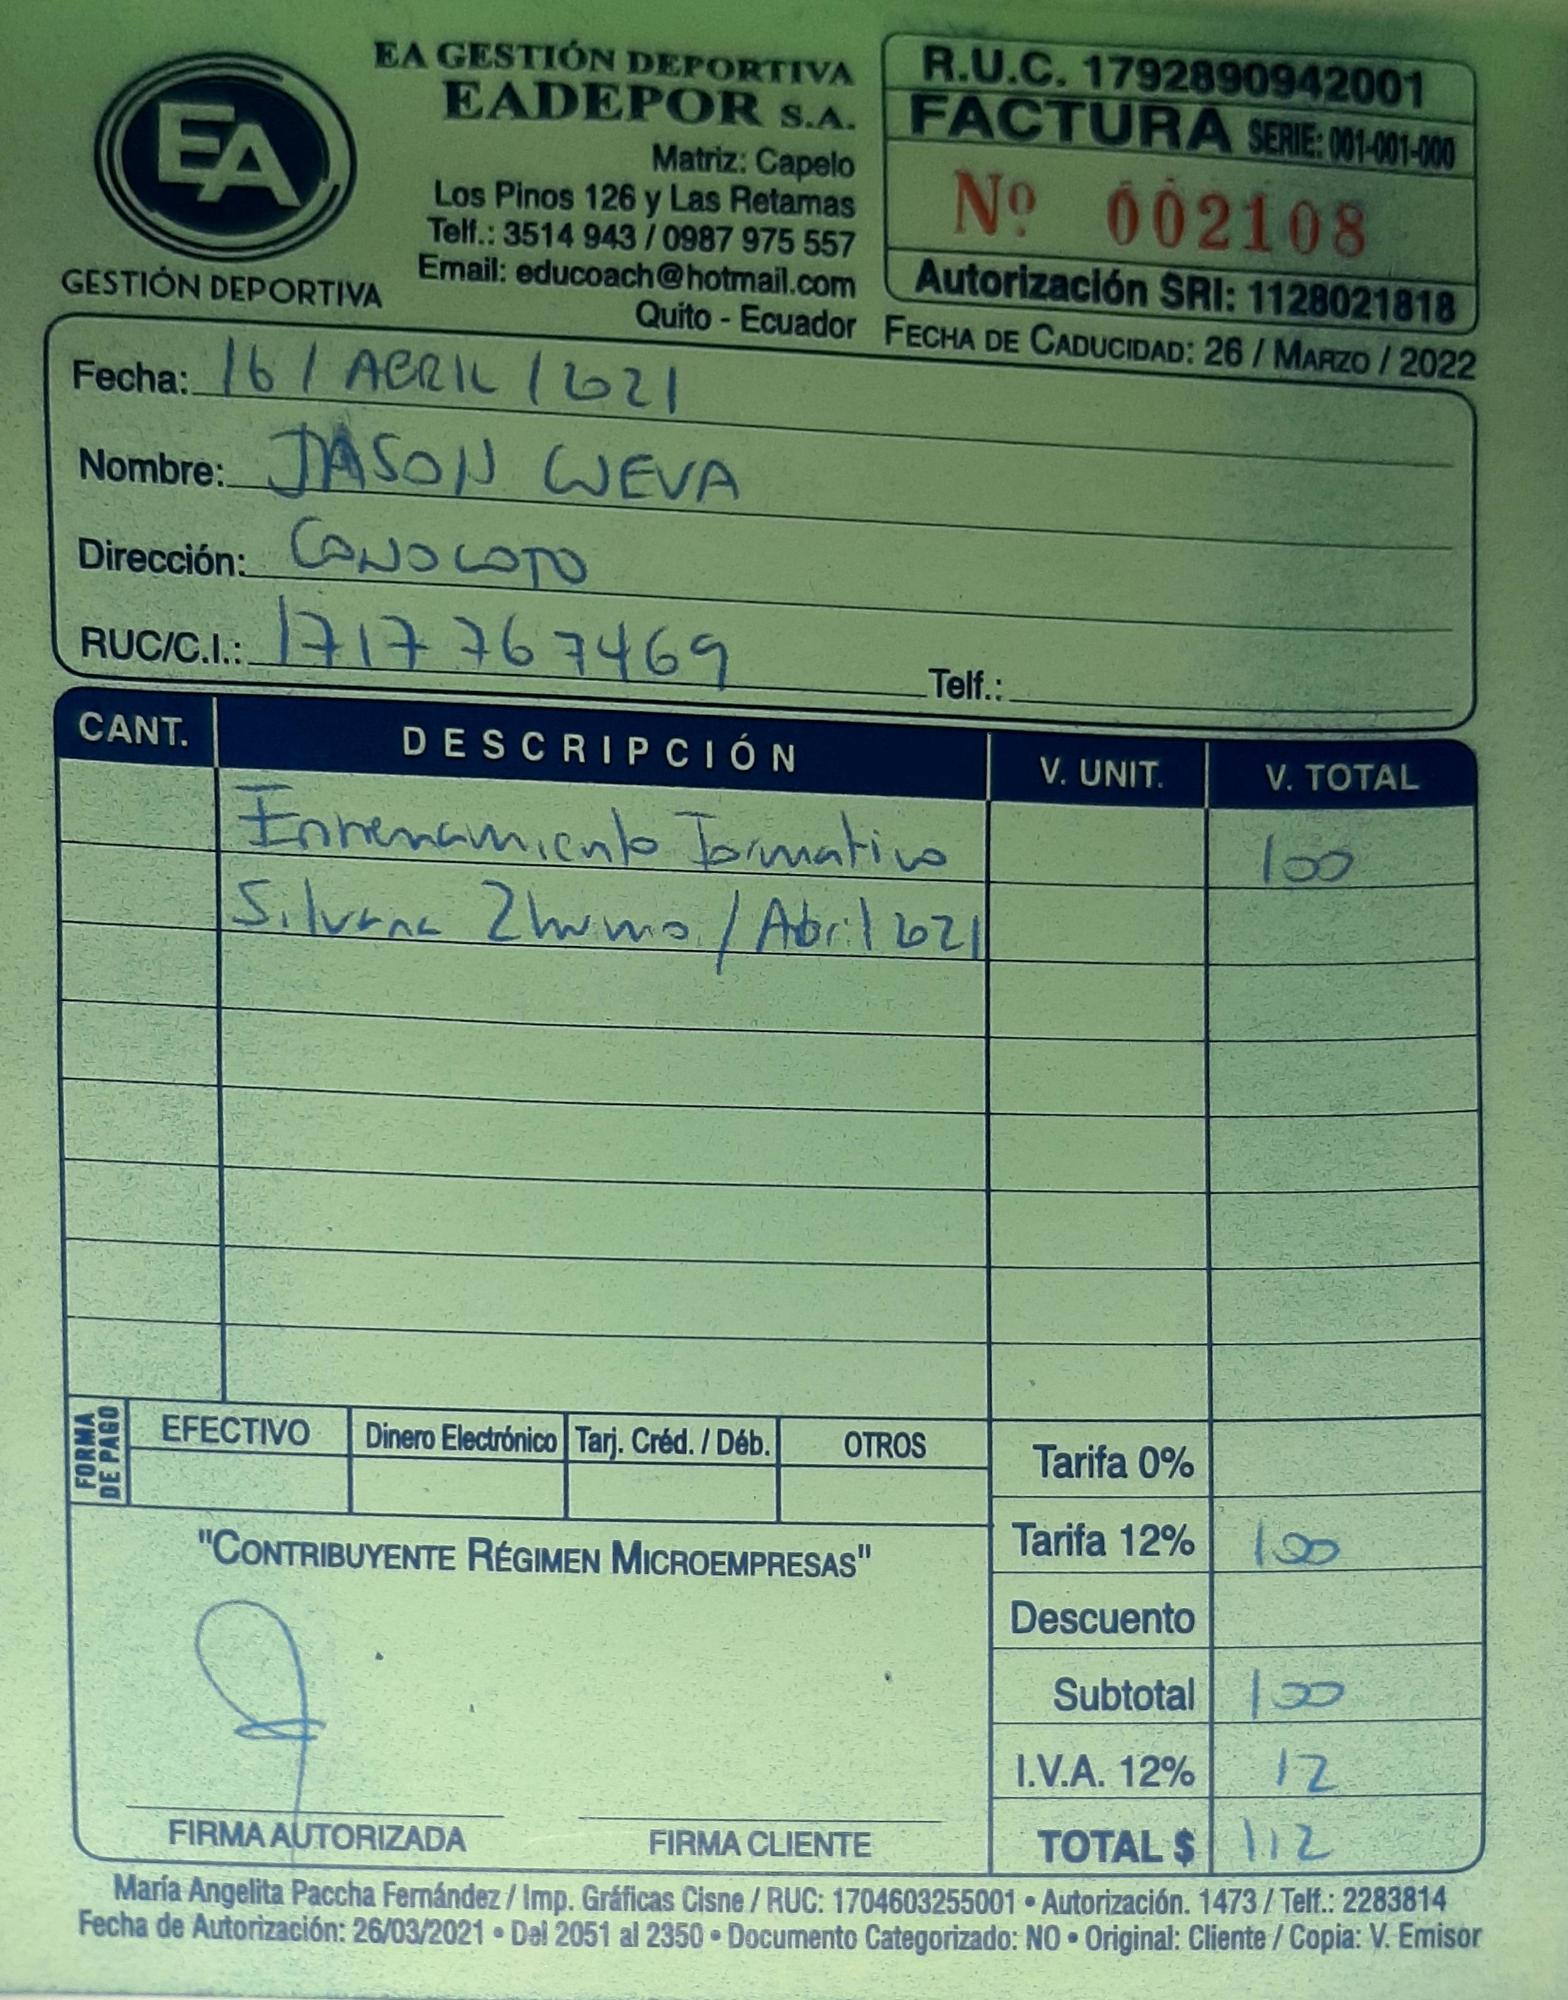 EA
GESTIÓN DEPORTIVA
EA GESTIÓN DEPORTIVA
EADEPOR S.A.
Matriz: Capelo
Los Pinos 126 y Las Retamas
Telf.: 3514 943 / 0987 975 557
Email: educoach@hotmail.com
Quito - Ecuador
R.U.C. 1792890942001
FACTURA SERIE: 001-001-000
Nº 002108
Autorización SRI: 1128021818
FECHA DE CADUCIDAD: 26 / MARZO / 2022
Fecha: 16 / ABRIL / 2021
Nombre: JASON CUEVA
Dirección: CONOCOTO
RUC/C.I.: 1717767469 Telf.:
CANT. DESCRIPCIÓN V. UNIT. V. TOTAL
Entrenamiento Formativo 100
Silvana / Abril 2021
FORMA DE PAGO
EFECTIVO Dinero Electrónico Tarj. Créd. / Déb. OTROS
Tarifa 0%
Tarifa 12% 100
Descuento
Subtotal 100
I.V.A. 12% 12
TOTAL $ 112
"CONTRIBUYENTE RÉGIMEN MICROEMPRESAS"
FIRMA AUTORIZADA FIRMA CLIENTE
María Angelita Paccha Fernández / Imp. Gráficas Cisne / RUC: 1704603255001 • Autorización. 1473 / Telf.: 2283814
Fecha de Autorización: 26/03/2021 • Del 2051 al 2350 • Documento Categorizado: NO • Original: Cliente / Copia: V. Emisor